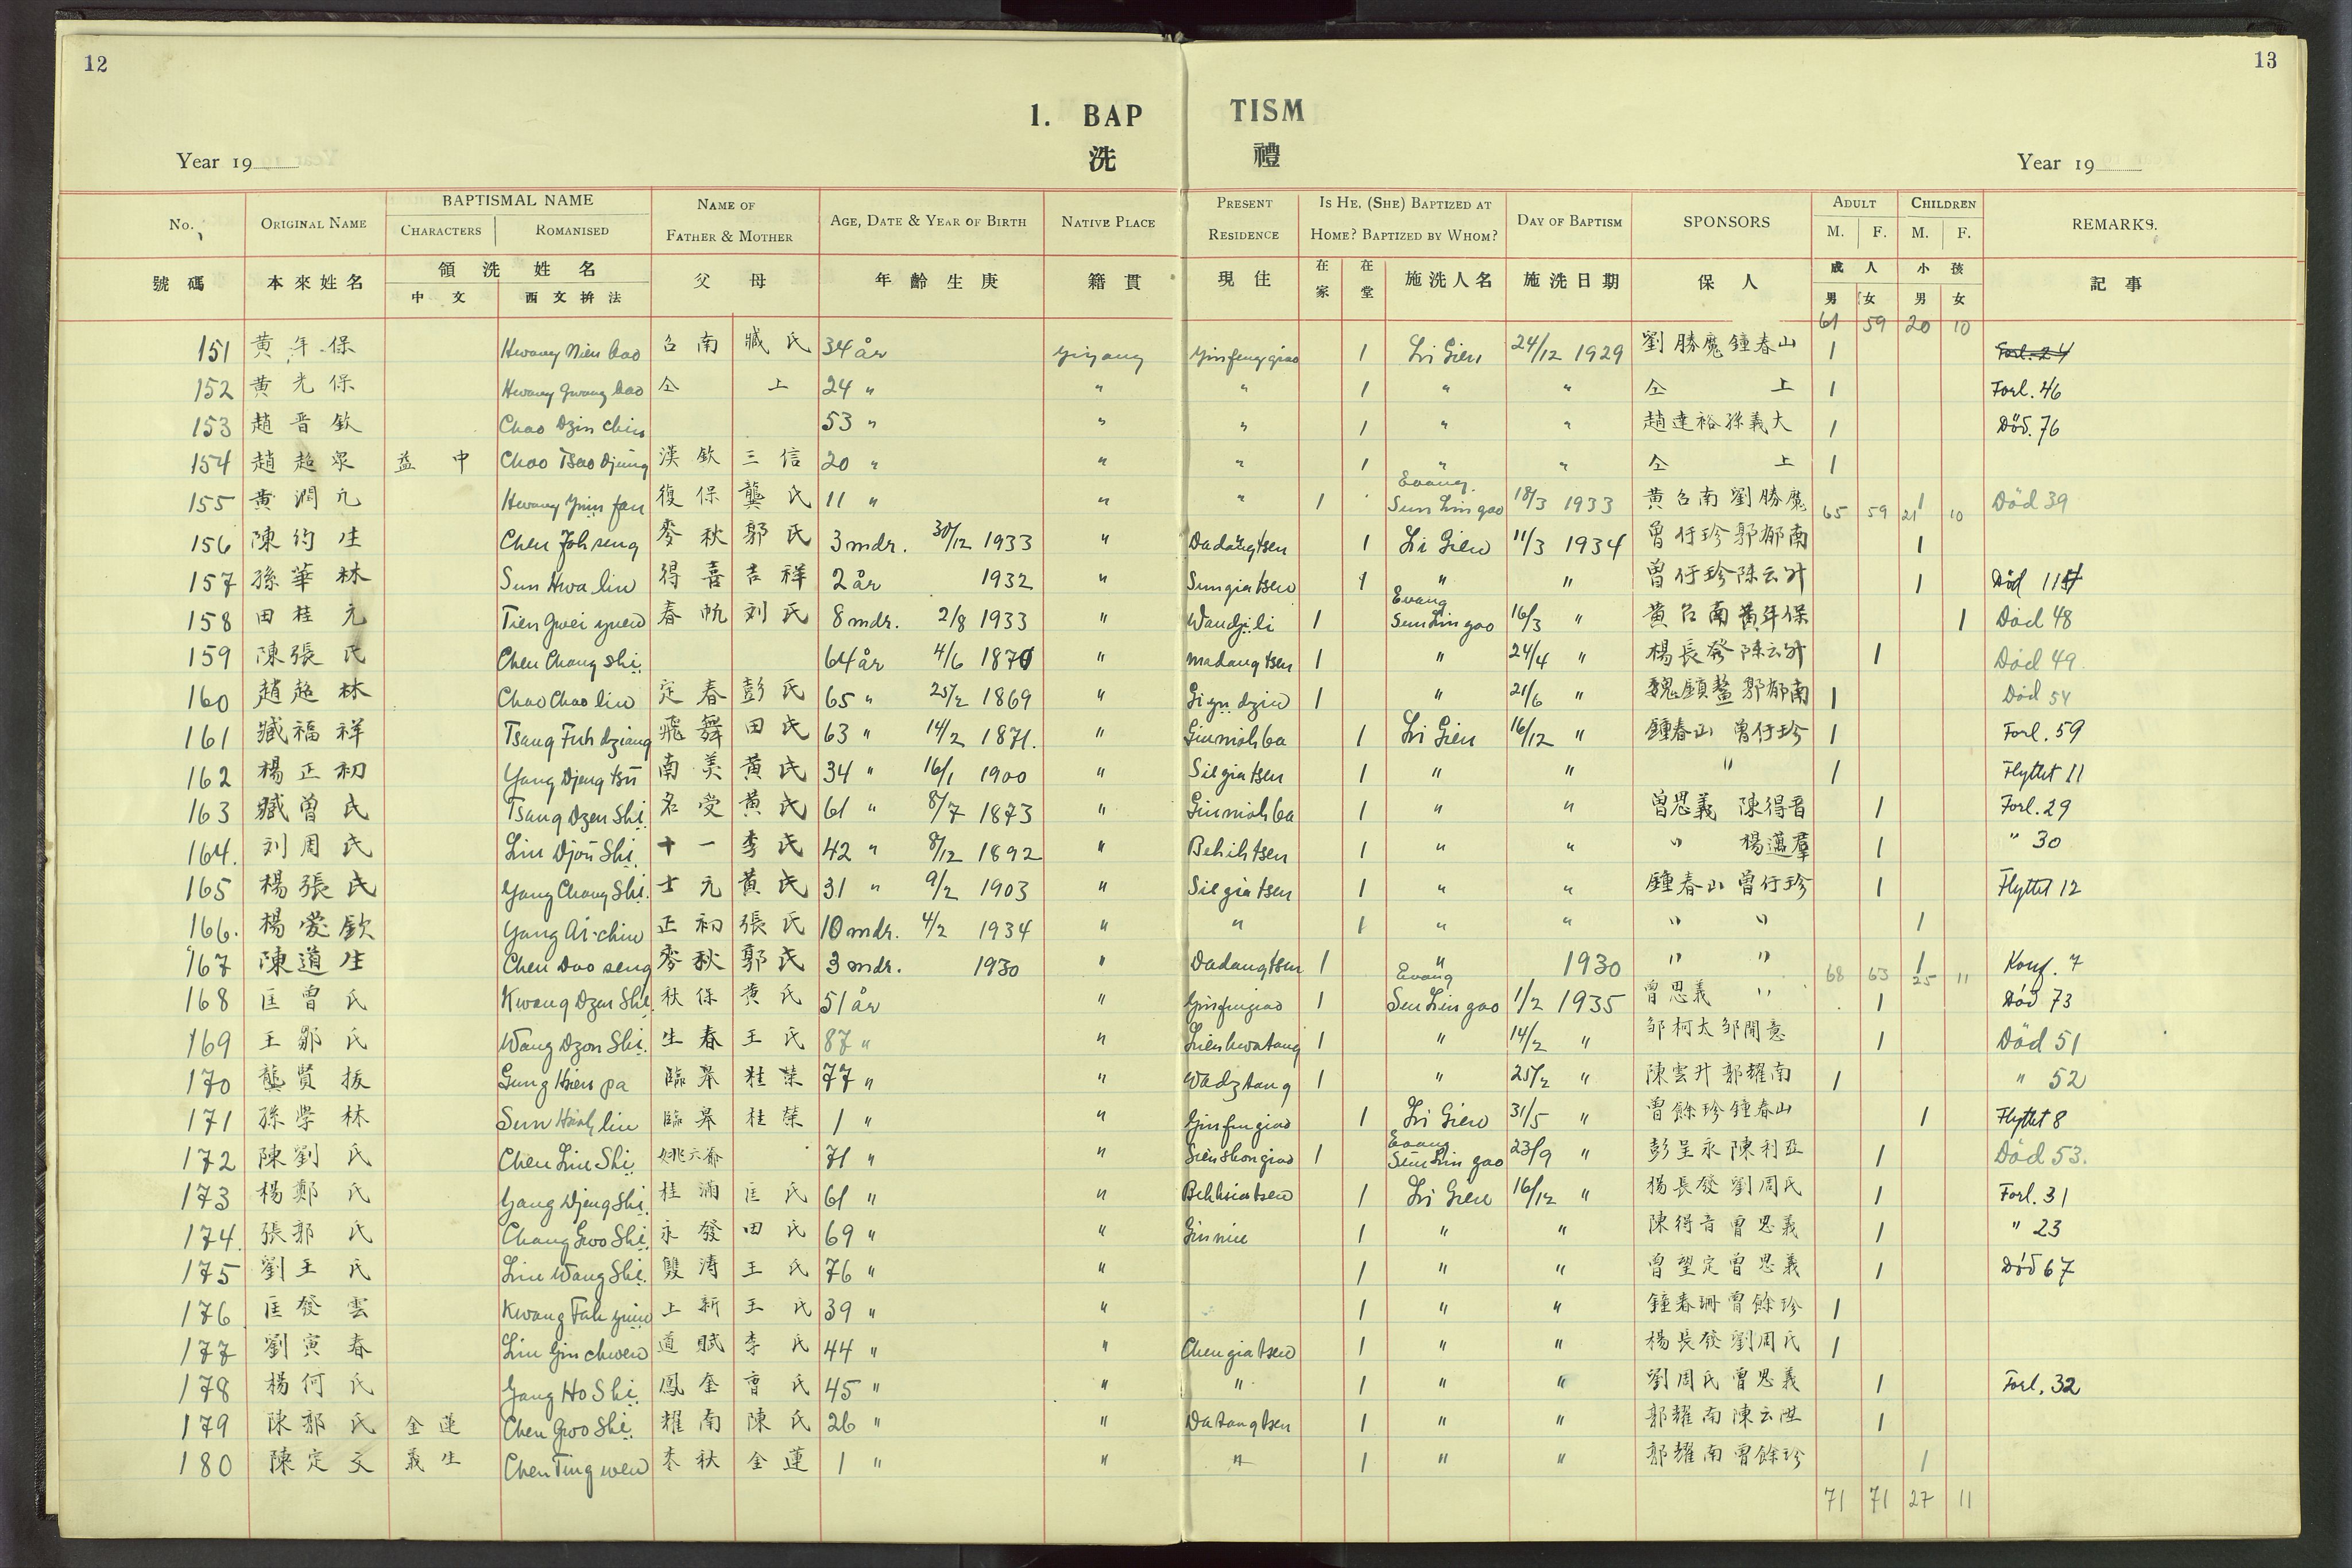 12
13
1. BAP TISM
洗 禮
Year 19
Year 19
No. ORIGINAL NAME BAPTISMAL NAME CHARACTERS ROMANISED NAME OF FATHER & MOTHER AGE, DATE & YEAR OF BIRTH NATIVE PLACE PRESENT RESIDENCE IS HE, (SHE) BAPTIZED AT HOME? BAPTIZED BY WHOM? DAY OF BAPTISM SPONSORS ADULT M. F. CHILDREN M. F. REMARKS.
號碼 本來姓名 領洗姓名 中文 西文拚法 父母 年齡生庚 籍貫 現住 在家 在堂 施洗人名 施洗日期 保人 成人 男 女 小孩 男 女 記事
61 59 20 10
151 黄年保 Hwang Nien bao 召南 臧氏 34 år Yiyang Yinfengqiao 1 Li Gien 24/12 1929 劉勝魔 鐘春山 1 Forl. 24
152 黄光保 Hwang Gwang bao 仝上 24 " " " 1 " " 仝上 1 Forl. 46
153 趙晋欽 Chao Dzin chin 53 " " " 1 " " 趙達裕 孫義大 1 Död. 76
154 趙超衆 益中 Chao Tsao Djung 漢欽 三信 20 " " " 1 " " 仝上 1
155 黄潤凡 Hwang Yuin fan 復保 龔氏 11 " " " 1 Evang. Sun Lin gao 18/3 1933 黄召南 劉勝魔 65 59 21 1 10 Död 39
156 陳約生 Chen Joh seng 麥秋 郭氏 3 mdr. 30/12 1933 " Dadangtsen 1 Li Gien 11/3 1934 曾伃珍 郭郁南 1
157 孫華林 Sun Hwa lin 得喜 吉祥 2 år 1932 " Sungiatsen 1 " " 曾伃珍 陈云升 1 Död
158 田桂元 Tien Gwei yuen 春帆 刘氏 8 mdr. 2/8 1933 " Wandzili 1 Evang Sun Lin gao 16/3 " 黄召南 黄年保 1 Död 48
159 陳張氏 Chen Chang Shi 64 år 4/6 1870 " Madangtsen 1 " 24/4 " 楊長發 陈云升 1 Död 49.
160 趙超林 Chao Chao lin 定春 彭氏 65 " 25/2 1869 " 1 " 21/6 " 魏鎮鰲 郭郁南 1 Död 54
161 臧福祥 Tsang Fuh dziang 飛舞 田氏 63 " 14/2 1871. " Giumiohba 1 Li Gien 16/12 " 鐘春山 曾伃珍 1 Forl. 59
162 楊正初 Yang Djeng tsu 南美 黄氏 34 " 16/1 1900 " Siegiatsen 1 " " " 1 Flyttet 11
163 臧曾氏 Tsang Dzen Shi 名受 黄氏 61 " 8/7 1873 " Giumiohba 1 " " 曾思義 陳得音 1 Forl. 29
164. 刘周氏 Liu Djou Shi 十一 李氏 42 " 8/12 1892 " Behihtsen 1 " " " 楊邁羣 1 " 30
165 楊張氏 Yang Chang Shi. 士元 黄氏 31 " 9/2 1903 " Siegiatsen 1 " " 鐘春山 曾伃珍 1 Flyttet 12
166. 楊愛欽 Yang Ai-chin 正初 張氏 10 mdr. 4/2 1934 " " 1 " " " " 1
167 陳道生 Chen Dao seng 麥秋 郭氏 3 mdr. 1930 " Dadangtsen 1 " 1930 " " 68 63 25 1 11 Konf. 7
168 匡曾氏 Kwang Dzen Shi. 秋保 黄氏 51 år " 1 Evang Sun Lin gao 1/2 1935 曾思義 " 1 Död 73
169 王鄒氏 Wang Dzou Shi. 生春 王氏 87 " " Lienhwatang 1 " 14/2 " 邹柯太 邹開意 1 Död 51
170 龔賢拔 Gung Hien pa 臨皋 桂荣 77 " " Wadztang 1 " 25/2 " 陳雲升 郭耀南 1 " 52
171 孫学林 Sun Hioh lin 臨皋 桂荣 1 " " 1 Li Gien 31/5 " 曾餘珍 鐘春山 1 Flyttet 8
172 陳劉氏 Chen Liu Shi 姚六爺 71 " " 1 Evang Sun Lin gao 23/9 " 彭呈永 陳利亞 1 Död 53.
173 楊鄭氏 Yang Djeng Shi. 桂滿 匡氏 61 " " Behhiatsen 1 Li Gien 16/12 " 楊長發 劉周氏 1 Forl. 31
174. 張郭氏 Chang Gwo Shi. 永發 田氏 69 " " 1 " " 陳得音 曾思義 1 " 23
175 劉王氏 Liu Wang Shi. 雙濤 王氏 76 " " 1 " " 曾望定 曾思義 1 Död 67
176 匡發雲 Kwang Fah yuin 上新 王氏 39 " " 1 " " 鐘春珊 曾餘珍 1
177 劉寅春 Liu Yin chwen 道賦 李氏 44 " " Chengiatsen 1 " " 楊長發 劉周氏 1
178 楊何氏 Yang Ho Shi 鳳奎 曹氏 45 " " " 1 " " 劉周氏 曾思義 1 Forl. 32
179 陳郭氏 金蓮 Chen Gwo Shi. 耀南 陳氏 26 " " Datangtsen 1 " " 郭耀南 陳云陞 1
180 陳定文 義生 Chen Ting wen 麦秋 金蓮 1 " " " 1 " " 郭耀南 曾餘珍 1
71 71 27 11